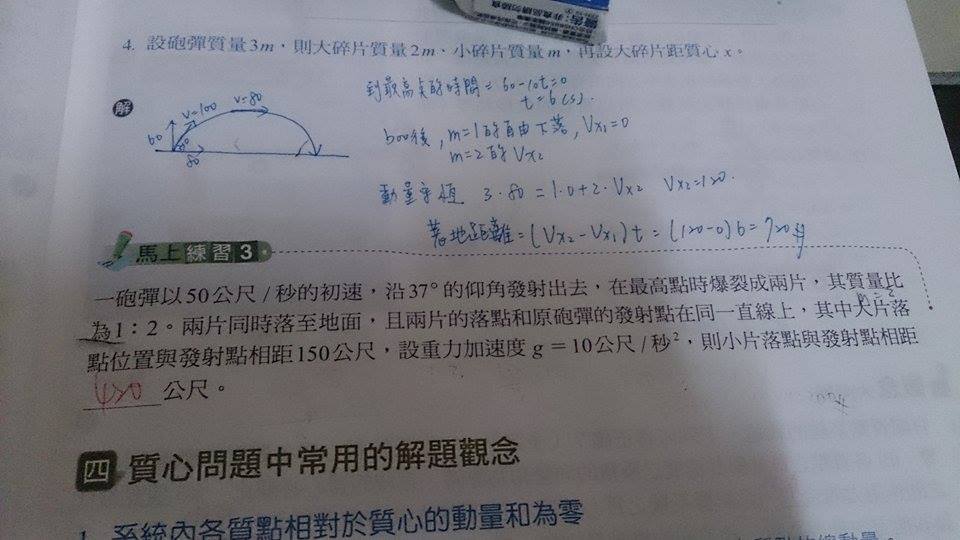 4. 設砲彈質量3m，則大碎片質量2m、小碎片質量m，再設大碎片距質心x。
解
到最高點的時間= 60-10t=0
t=6(s).
v=100
v=80
60
80
boo後，m=1的自由下落，Vx₁=0
m=2的Vx₂
動量守恆 3·80=1·0+2·Vx₂ Vx₂=120.
落地距離=(Vx₂-Vx₁)t=(120-0)6=720
馬上練習3
一砲彈以50公尺/秒的初速，沿37°的仰角發射出去，在最高點時爆裂成兩片，其質量比
為1：2。兩片同時落至地面，且兩片的落點和原砲彈的發射點在同一直線上，其中大片落
點位置與發射點相距150公尺，設重力加速度g＝10公尺/秒²，則小片落點與發射點相距
420公尺。
四 質心問題中常用的解題觀念
1. 系統內各質點相對於質心的動量和為零